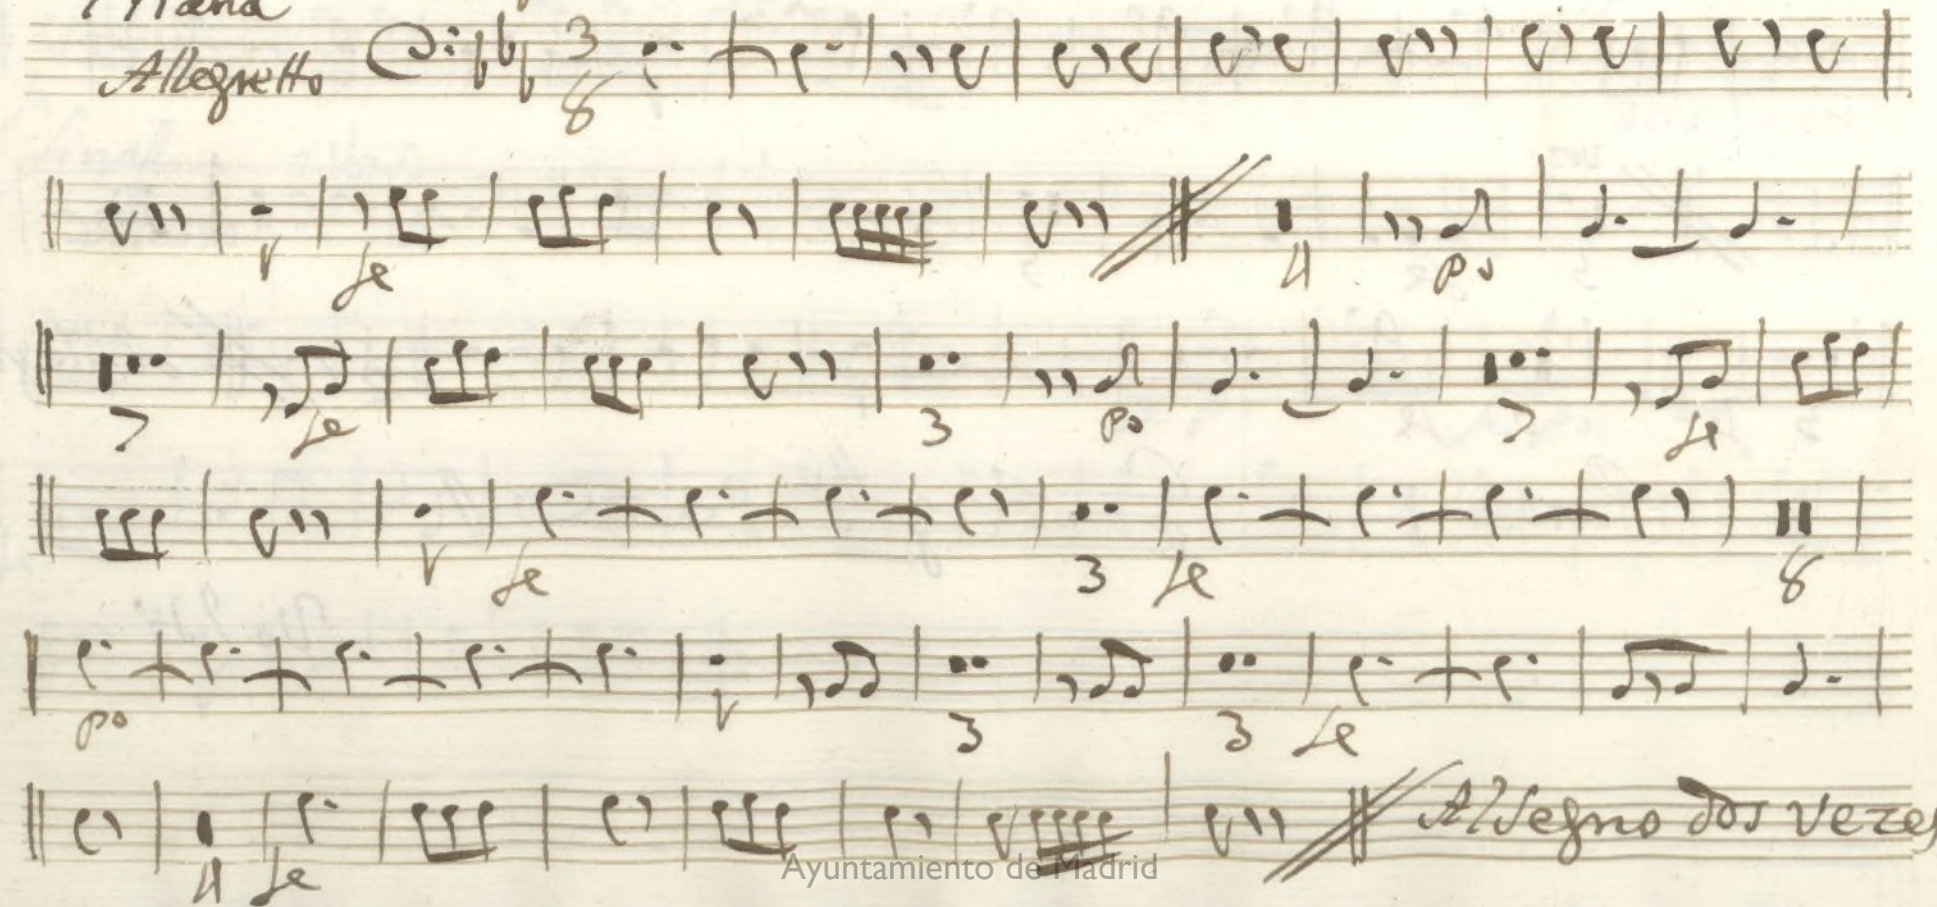 Allegretto 3 8
fe 4 po
7 fe 3 po 7 fe
fe 3 fe 8
po 3 3 fe
4 fe Al Segno dos vezes
Ayuntamiento de Madrid